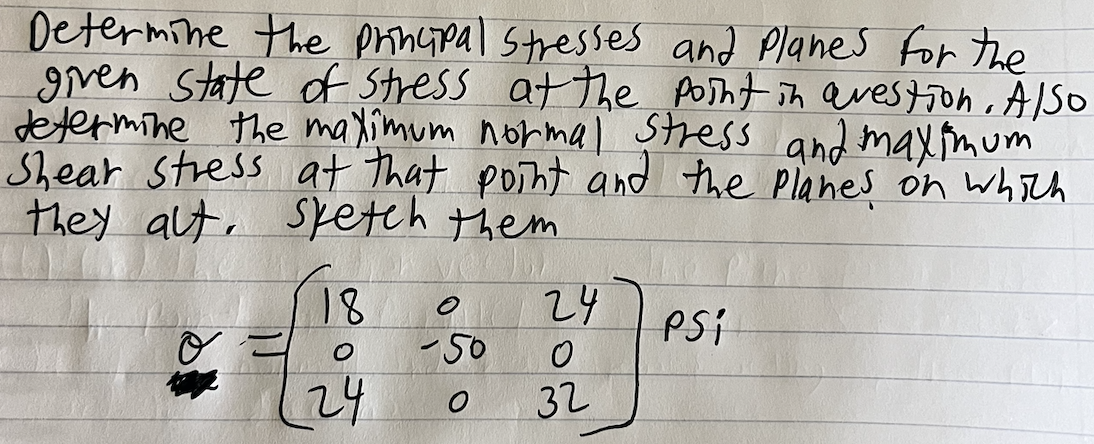 Determine the principal stresses and planes for the
given state of stress at the point in question. Also
determine the maximum normal stress and maximum
shear stress at that point and the planes on which
they act. Sketch them
σ = ( 18 0 24
0 -50 0
24 0 32 ) psi